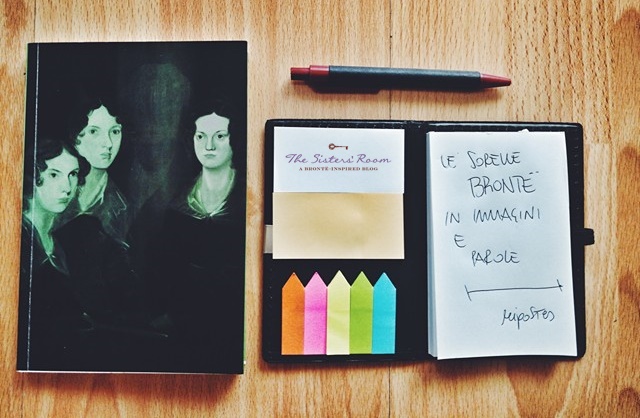 The Sisters' Room
A BRONTË-INSPIRED BLOG
LE SORELLE
BRONTË
IN IMMAGINI
E
PAROLE